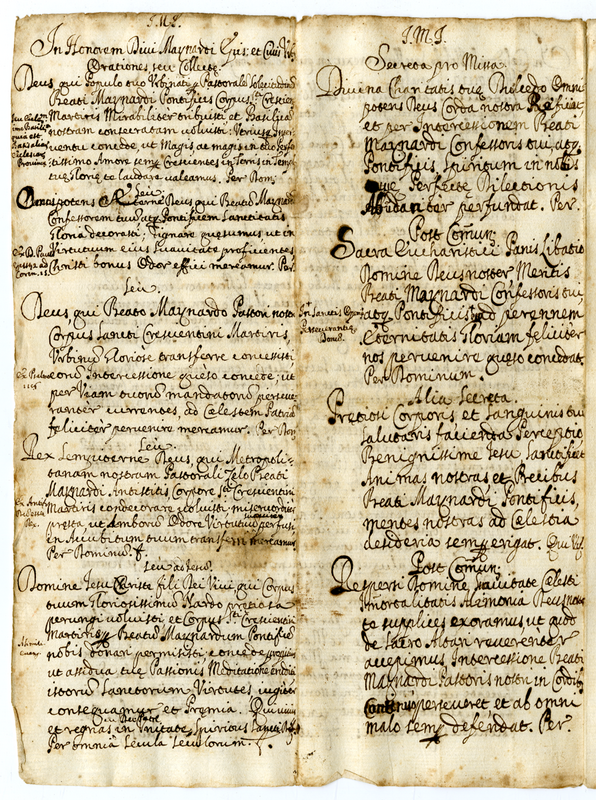 J. M. J.
In Honorem Divi Maynardi Epis: et Civis Urb:
Orationes, seu Collectę.
Deus, qui Populo tuo Urbinati Pastorali Solecitudine
Beati Maynardi Pontificis Corpus S.ti Crescen:
Martiris Mirabiliter tribuisti et Basilicā
nostram consecratam voluisti:
concede, ut Magis ac magis in tuo
Amore semp Crescentes in Terris in
tuę Glorię te laudare valeamus. Per Dom.
Seu.
Omnipotens Sempiterne Deus qui Beatū Maynardū
Confessorem tuū atq Pontificem Sanctitatis
Gloria decorasti; Dignare quesumus ut in
Virtutum eius Suavitate proficientes
Christi bonus Odor effici mereamur. Per.
ex D. Paul
Corin. 15.
Seu.
Deus qui Beato Maynardo Pastori nostro
Corpus Sancti Crescentini Martiris,
Urbinū Gloriose transferre concessisti
Intercessione queso concede; ut
per Viam tuorū mandatorū perseve
ranter currentes, ad Celestem Patriā
feliciter pervenire mereamur. Per Dom
Seu.
Rex Sempiterne Deus, qui Metropoli-
tanam nostram Pastorali Zelo Beati
Maynardi Antistitis Corpore S.ti Crescentini
Martiris condecorare voluisti misericorditer
presta, ut Amborū Odore Virtutū perfusi
in Ambitum tuum transferri mereamur
Per Dominū.
Seu ad Jesū.
Domine Jesu Christe fili Dei Vivi, qui Corpus
tuum Gloriosissimū Nardo pretiosa
perungi voluisti et Corpus S.ti Crescentini
Martiris Beatū Maynardum Pontificē
nobis donari permisisti concede
ut assidua tuę Passionis Meditatione
istorū Sanctorum Virtutes iugiter
consequamur et Premia. Qui vivis
et regnas in Unitate Spiritus Sancti
Per omnia Secula Seculorum.
J. M. J.
Secreta pro Missa.
Divina Charitatis tuę Dulcedo Omni
potens Deus Corda nostra Reficiat
et per Intercessionem Beati
Maynardi Confessoris tui, atq
Pontificis, Spiritum in nobis
tuę Perfectę Dilectionis
Abūdanter perfundat. Per.
Post Comun:
Sacra Eucharistici Panis Libatio
Domine Deus noster Meritis
Beati Maynardi Confessoris tui,
atq Pontificis ad perennem
Eternitatis Gloriam feliciter
nos pervenire queso concedat.
Per Dominum.
Perseverantię
Dono.
Alia Secreta.
Pretiosi Corporis et Sanguinis tui
Salutaris facienda Perceptio
Benignissime Jesu Sanctificet
Animas nostras et Precibus
Beati Maynardi Pontificis,
mentes nostras ad Celestia
desideria semp erigat. Qui Vis.
Post Comun:
Respersi Domine suavitate Celesti
Imortalitatis Alimonia Deus noster
te supplices exoramus ut quod
de Sacro Altari reverenter
accepimus Intercessione Beati
Maynardi Pastoris nostri in Cordib:
perseveret et ab omni
malo semp defendat. Per.